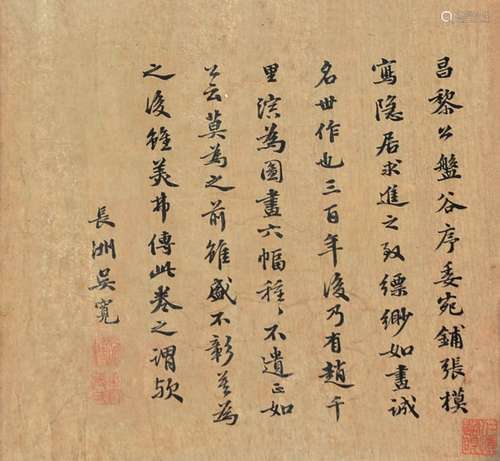 昌黎公盤谷序委宛鋪張模
寫隐居求進之致縹緲如畫誠
名世作也三百年後乃有趙千
里演為圖畫六幅種〻不遺正如
公云莫為之前雖盛不彰莫為
之後雖美弗傳此卷之謂歟
長洲吳寬